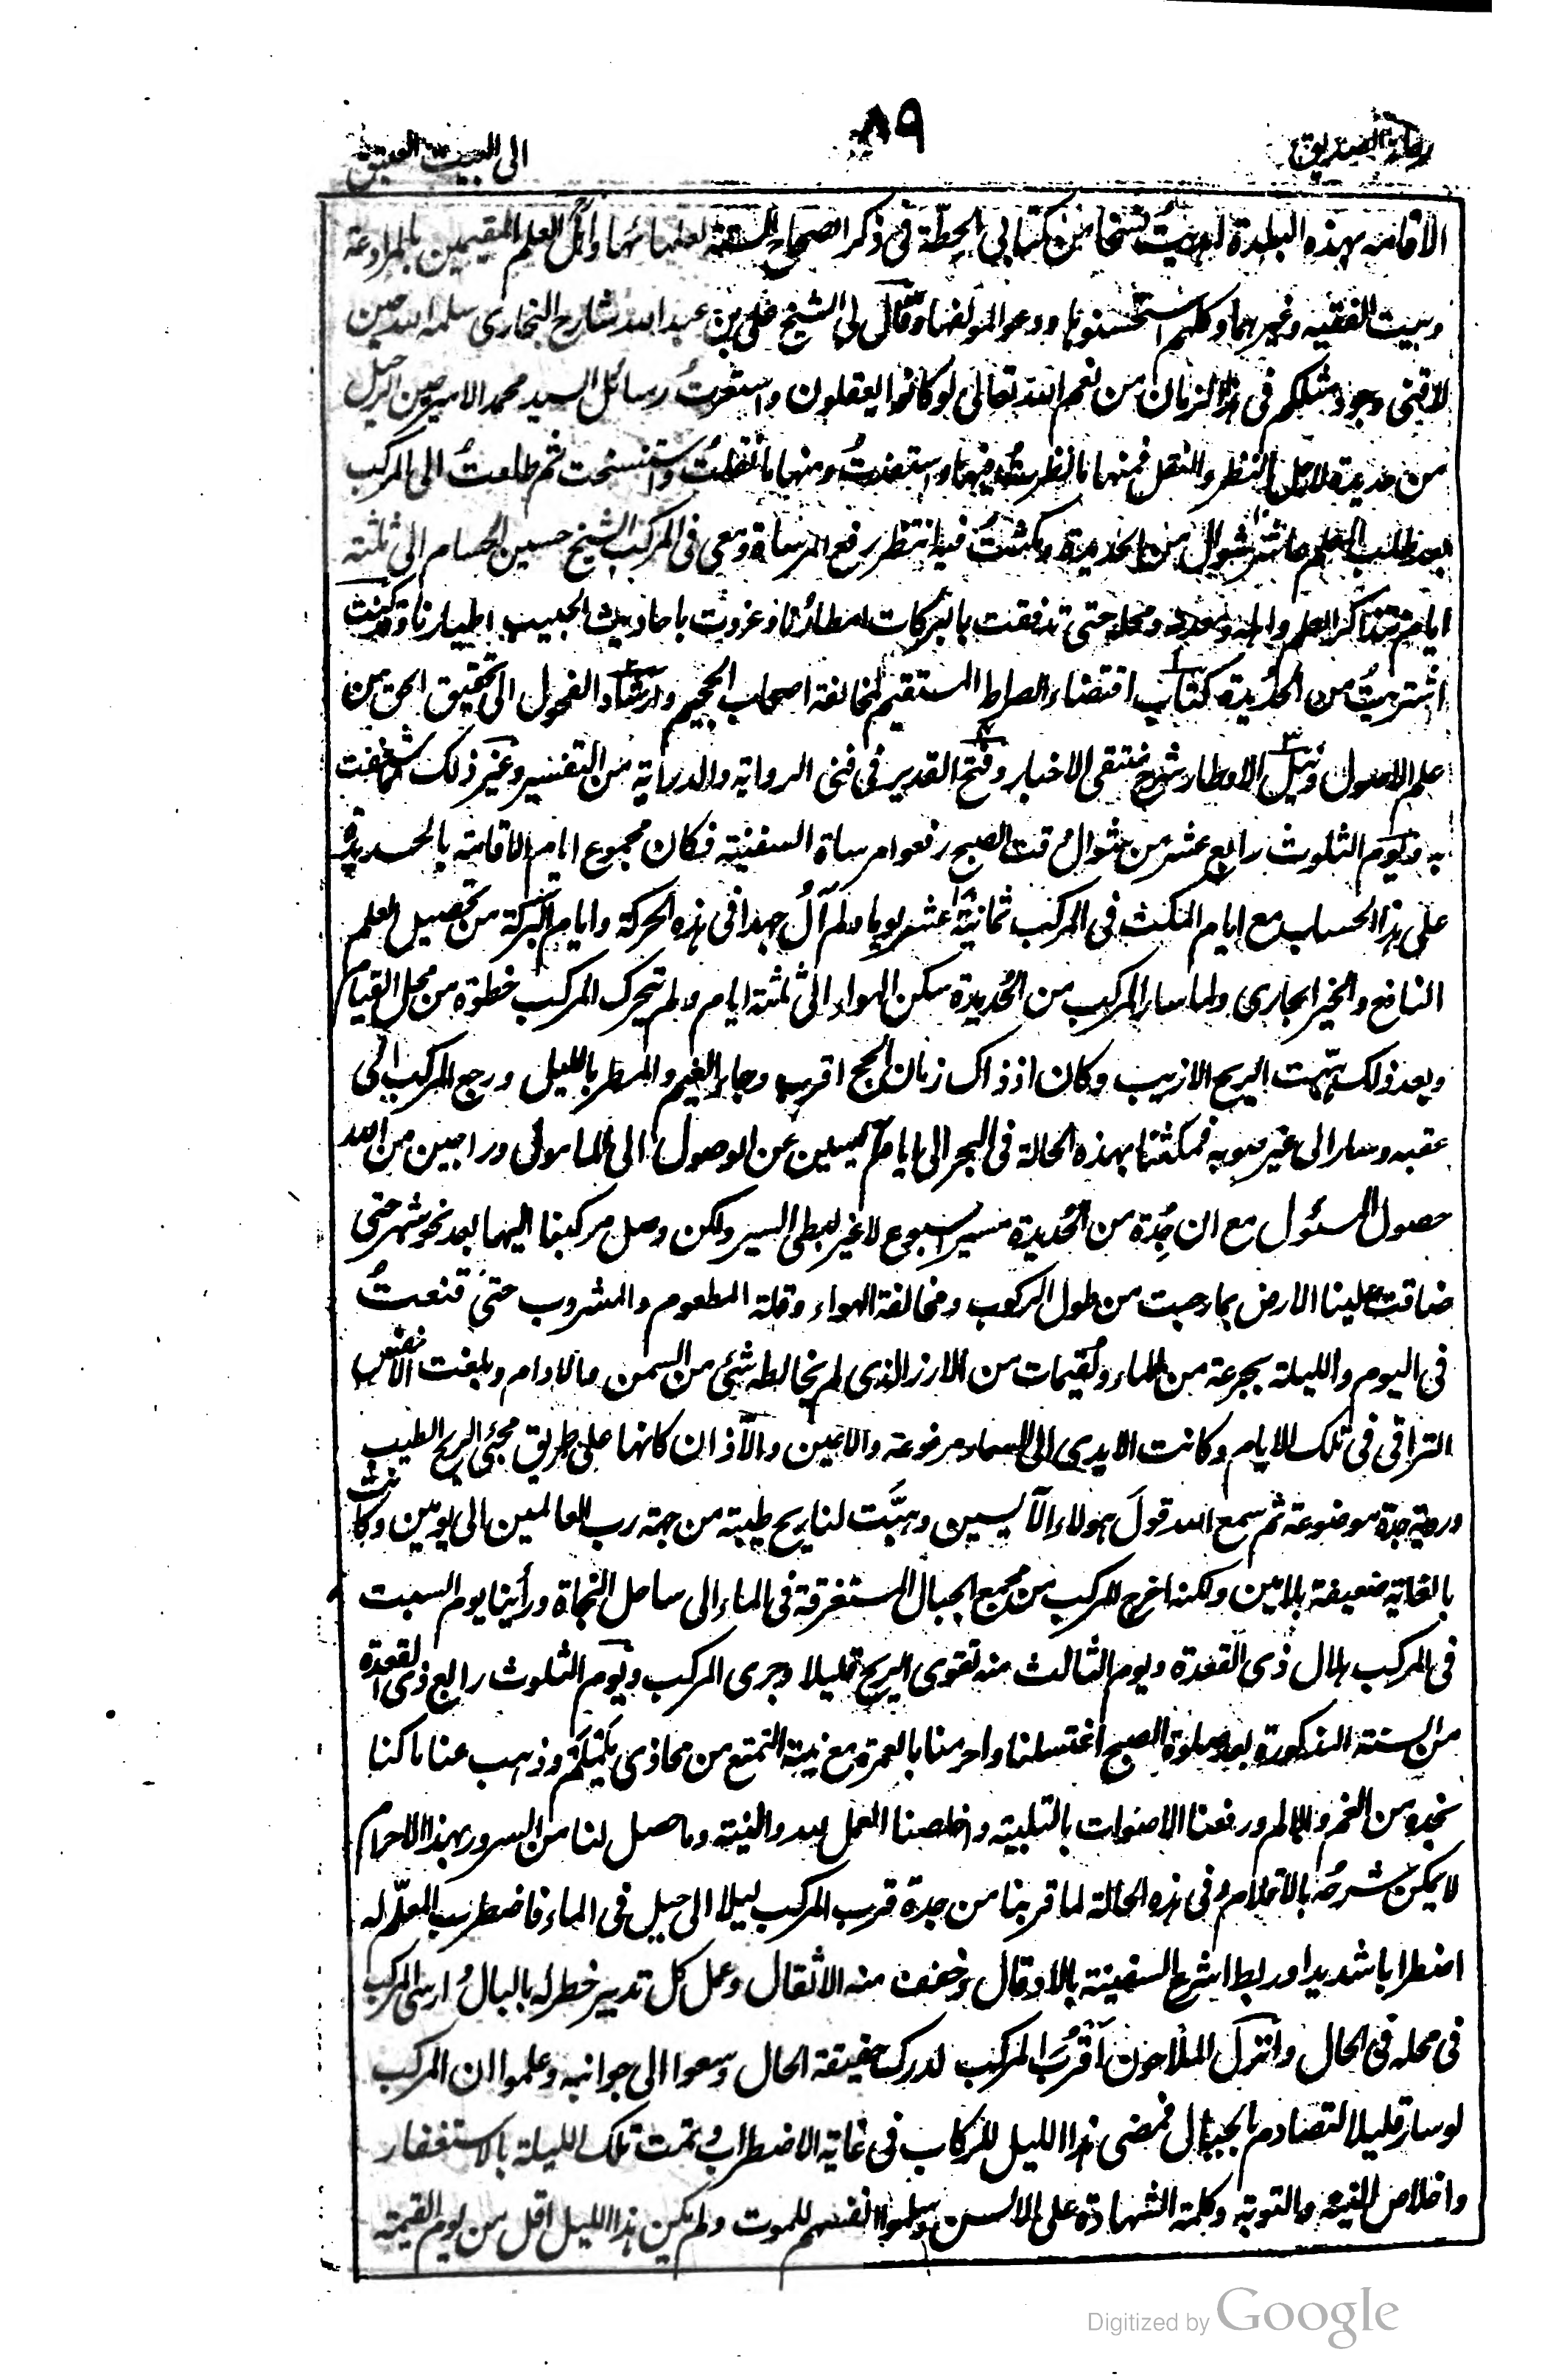 رحلة الصديق
٨٩
الى البيت العتيق
الاقامة بهذه البلدة اهديتُ نسخا من كتابي الحِطّة فى ذكر الصحاح الستة لعلمائها واهل العلم المقيمين بالمراوعة
وبيت الفقيه وغيرهما وكلهم استحسنوها ودعوا لمؤلفها وقال لى الشيخ على بن عبد الله شارح البخارى سلمه الله حين
لاقنى وجود مثلكم فى هذا الزمان من نعم الله تعالى لو كانوا يعقلون واستعرتُ رسائل السيد محمد الامير حين الرحيل
من حديدة لاجل النظر والنقل فمنها ما نظرتُ فيها واستفدتُ ومنها ما نقلتُ واستنسخت ثم طلعتُ الى المركب
بعد طلب العلم عاشر شوال من الحديدة ومكثتُ فيه انتظر رفع المرساة ومعى فى المركب الشيخ حسين الحسام الى ثلثة
ايام نتذاكر العلم واهله ومعدنه ومحله حتى تدفقت بالبركات امطارُنا وغردت باحاديث الحبيب اطيارنا وكنت
اشتريتُ من الحُديدة كتاب اقتضاء الصراط المستقيم لمخالفة اصحاب الجحيم وارشاد الفحول الى تحقيق الحق من
علم الاصول ونيل الاوطار شرح منتقى الاخبار وفتح القدير فى فنى الرواية والدراية من التفسير وغير ذلك مما شغفت
به ويوم الثلوث رابع عشر من شوال وقت الصبح رفعوا مرساة السفنية فكان مجموع ايام الاقامة بالحديدة
على هذا الحساب مع ايام المكث فى المركب ثمانية عشر يوما ولم آلُ جهدا فى هذه الحركة وايام البركة من تحصيل العلم
النافع والخير الجارى ولما سار المركب من الحُديدة سكن الهواء الى ثلثة ايام ولم تحرك المركب خطوة من محل القيام
وبعد ذلك هبّت الريح الازيب وكان اذ ذاك زمان الحج اقرب وجاء الغيم والمطر بالليل ورجع المركب الى
عقبه وسار الى غير صوبه فمكثنا بهذه الحالة فى البحر الى ايام آيسين عن الوصول الى المامول وراجين من الله
حصول المسئول مع ان جُدة من الحُديدة مسير اسبوع لا غير لبطى السير ولكن وصل مركبنا اليها بعد نحو شهر حتى
ضاقت علينا الارض بما رحبت من طول الركوب ومخالفة الهواء وقلة المطعوم والمشروب حتى قنعتُ
فى اليوم والليلة بجرعة من الماء ولُقيمات من الارز الذى لم يخالطه شئ من السمن والادام وبلغت الانفس
التراقى فى تلك الايام وكانت الايدى الى السماء مرفوعة والاعين والآذان كانها على طريق مجئ الريح الطيب
ورؤية جدة موضوعة ثم سمع الله قولَ هولاء الآيسين وهبَّت لنا ريح طيبة من جهة رب العالمين الى يومين وكانت
بالغاية ضعيفة بلا مين ولكنه اخرج المركب من مجمع الجبال المستغرقة فى الماء الى ساحل النجاة ورأينا يوم السبت
فى المركب هلال ذى القعدة ويوم الثالث منه تقوى الريح قليلا وجرى المركب ويوم الثلوث رابع ذى القعدة
من السنة المذكورة بعد صلوة الصبح اغتسلنا واحرمنا بالعمرة مع نية التمتع من محاذى يَلَمْلَمْ وذهب عنا ما كنا
نجده من الغم والالم ورفعنا الاصوات بالتلبية واخلصنا العمل لله والنية وما حصل لنا من السرور بهذا الاحرام
لا يمكن شرحُه بالاقلام وفى هذه الحالة لما قربنا من جدة قرب المركب ليلا الى جبل فى الماء فاضطرب المعلّم له
اضطرابا شديدا وربط اشرع السفينة بالادقال وخفف منه الاثقال وعمل كل تدبير خطر له بالبالُ ارسى المركب
فى محله فى الحال وانزل الملاحون اَقْرُبَ المركب لدرك حقيقة الحال وسعوا الى جوانبه وعلموا ان المركب
لو سار قليلا لتصادم بالجبال فمضى هذا الليل للركاب فى غاية الاضطراب وتمت تلك الليلة بالاستغفار
واخلاص النية والتوبة وكلمة الشهادة على الالسن وسلموا انفسهم للموت ولم يكن هذا الليل اقل من يوم القيمة
Digitized by Google